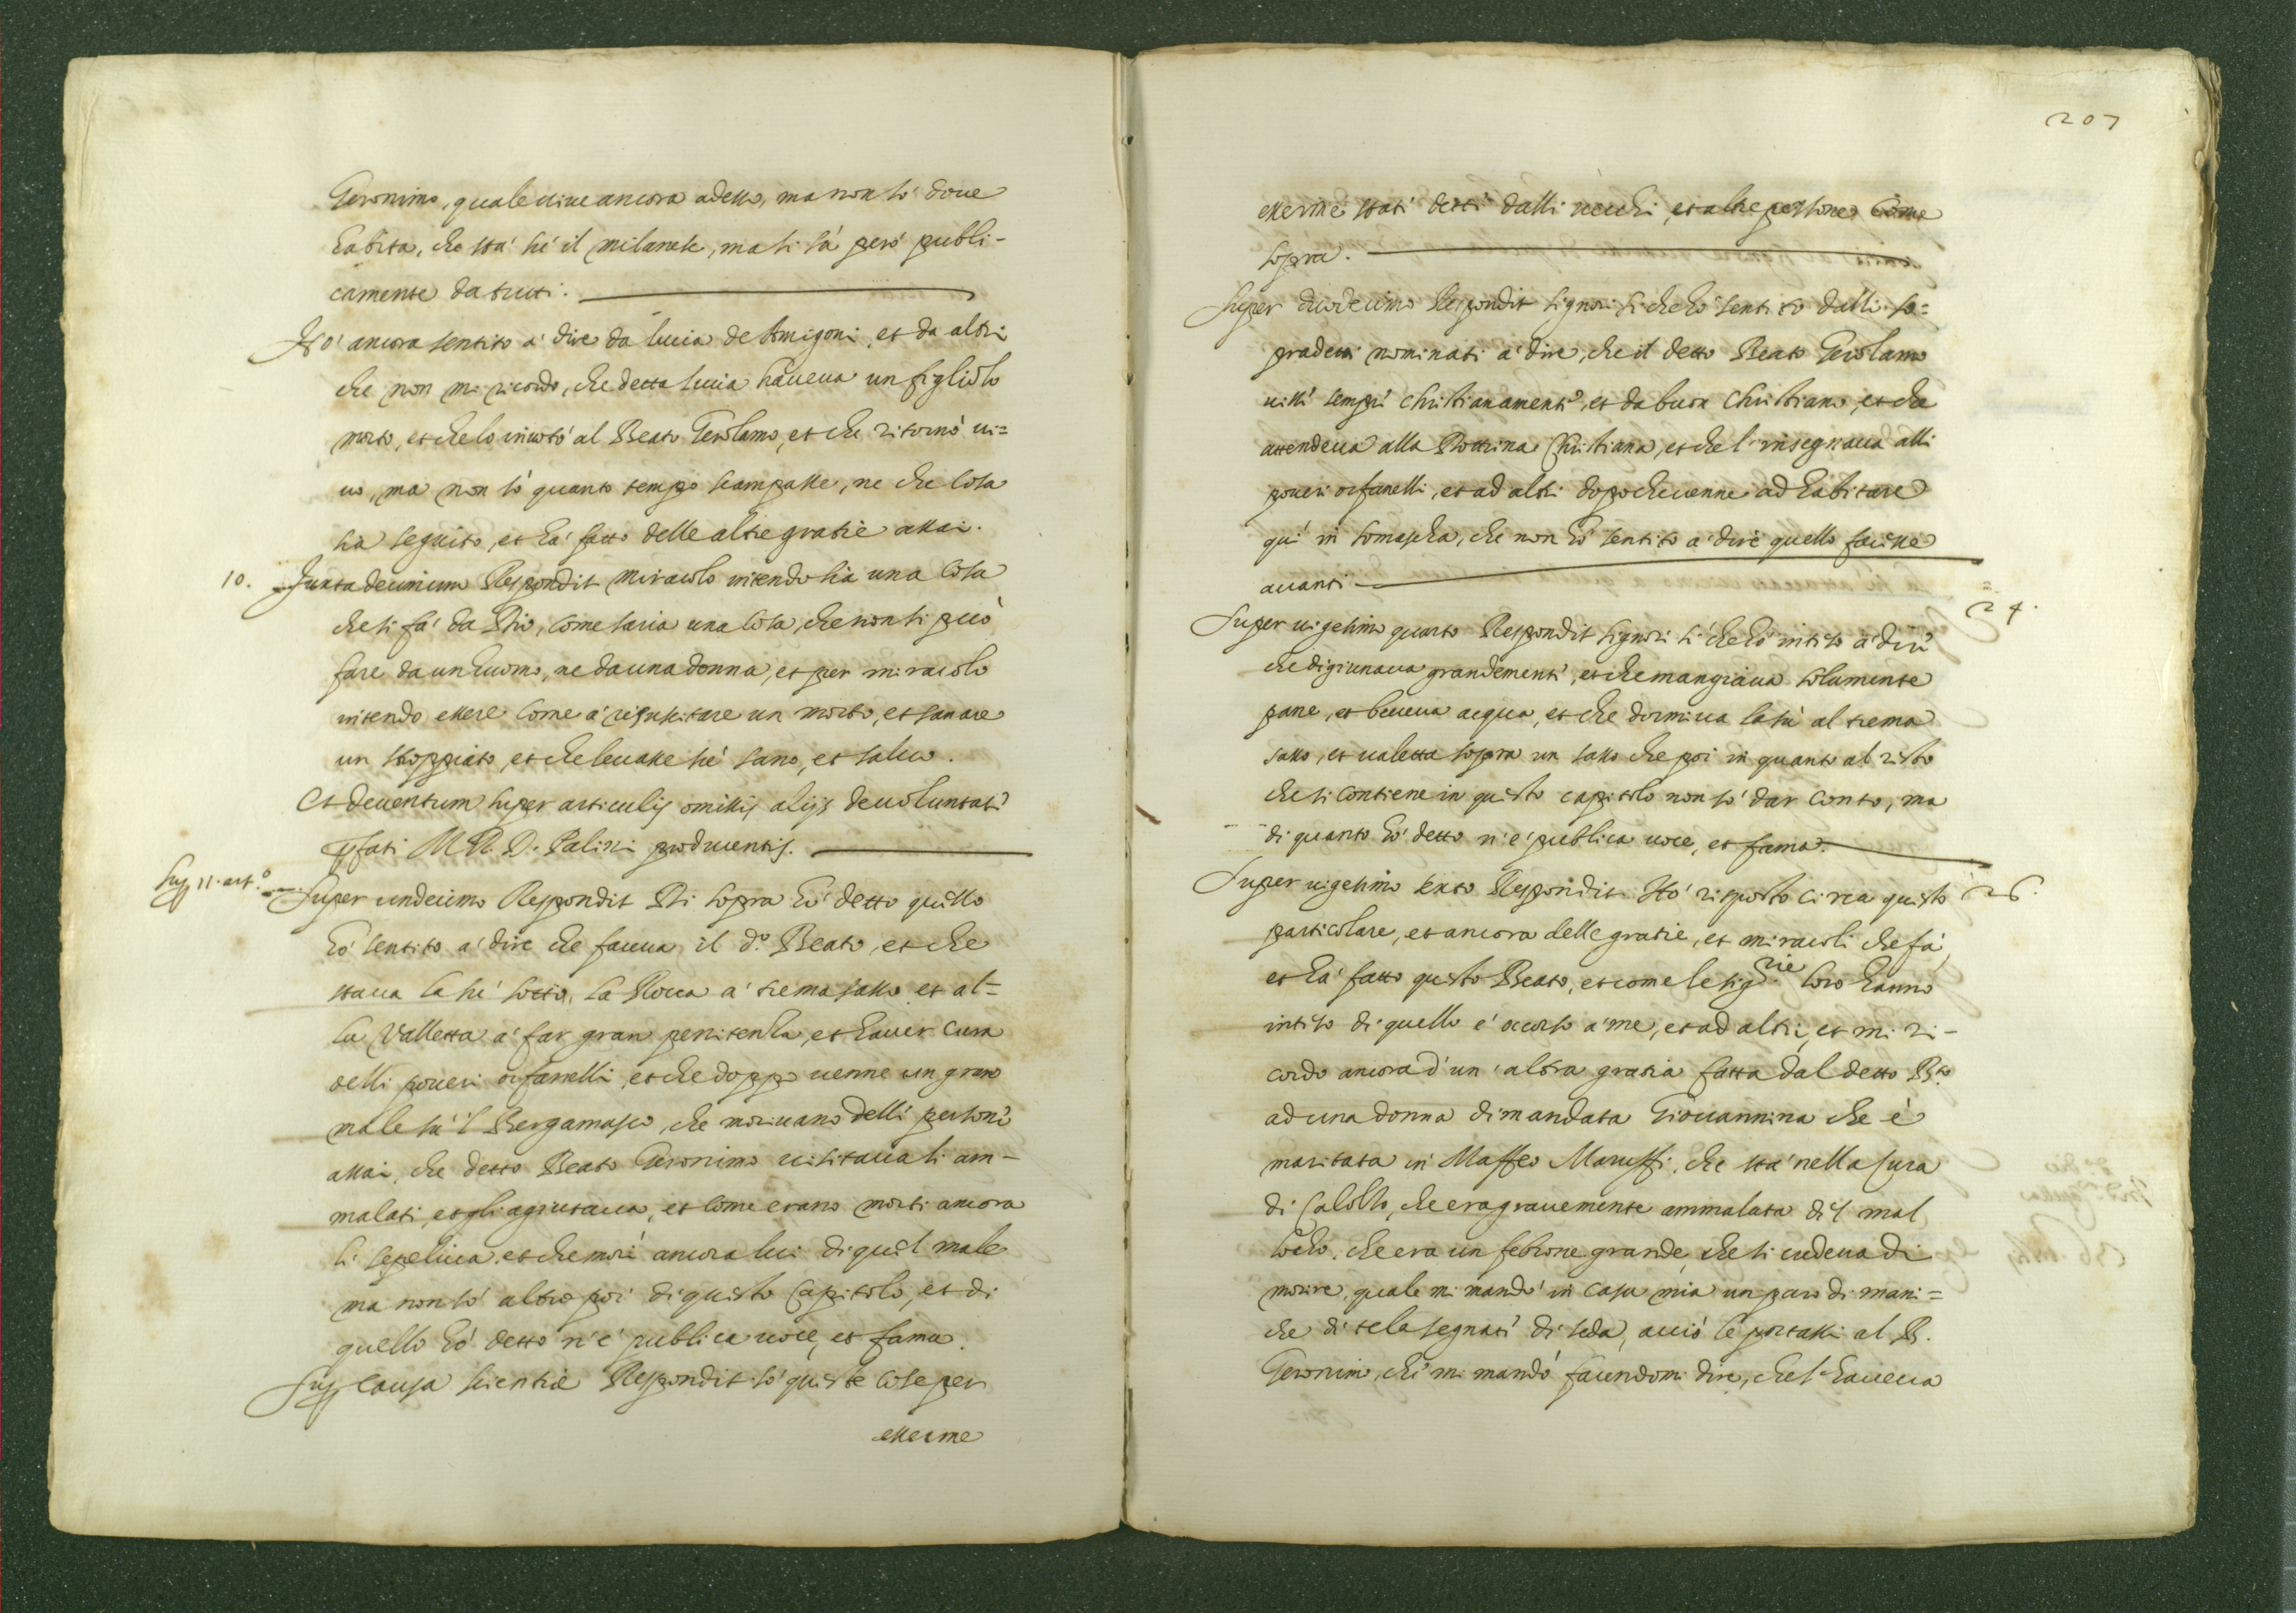 Geronimo, quale uiue ancora adesso, ma non sò doue
habita, che stà sù il milanese, ma si sà però publi-
camente da tutti.
Hò ancora sentito à dire da lucia de Amigoni, et da altri
che non mi ricordo, che detta lucia haueua un figliolo
morto, et che lo inuotò al Beato Gerolamo, et che ritornò ui=
uo, ma non sò quanto tempo scampasse, ne che cosa
sia seguito, et hà fatto delle altre gratie assai.
10. Juxta decimum Respondit Miracolo intendo sia una cosa
che si fà da Dio, come saria una cosa, che non si può
fare da un huomo, ne da una donna, et per miracolo
intendo essere come à resuscitare un morto, et sanare
un stroppiato, et che leuasse sù sano, et saluo.
Et deuentum super articulis omissis alijs de uoluntate
pfati M. R. D. Palini producentis.
Sup 11. art.º
Super undecimo Respondit Di sopra hò detto quello
hò sentito à dire che faceua il d.º Beato, et che
staua la sù sotto la Rocca à tremasasso et al=
la Valletta à far gran penitenza, et hauer cura
delli poueri orfanelli, et che doppo uenne un gran
male sù'l Bergamasco, che moriuano delli persone
assai, che detto Beato Geronimo uisitaua li am-
malati, et gli agiutaua, et come erano morti ancora
li sepeliua et che morì ancora lui di quel male
ma non sò altro poi di questo Capitolo, et di
quello hò detto n'è publica uoce, et fama.
Sup causa scientiæ Respondit sò queste cose per
esserme
207
esserme stati detti dalli uecchi, et altre persone come
sopra.
Super duodecimo Respondit signori si che hò sentito dalli so=
pradetti nominati à dire, che il detto Beato Gerolamo
uisse sempre christianamente, et da buon christiano, et che
attendeua alla Dottrina Christiana, et che l'insegnaua alli
poueri orfanelli, et ad altri dopo che uenne ad habitare
quì in somascha, che non hò sentito à dire quello facesse
auanti
24.
Super uigesimo quarto Respondit signori si che hò inteso à dire
che digiunaua grandemente, et che mangiaua solamente
pane, et beueua acqua, et che dormiua lasù al trema
sasso, et ualetta sopra un sasso che poi in quanto al resto
che si contiene in questo capitolo non sò dar conto, ma
di quanto hò detto n'è publica uoce, et fama.
26.
Super uigesimo sexto Respondit Hò risposto circa questo
particolare, et ancora delle gratie, et miracoli che fà,
et hà fatto questo Beato, et come le sig.rie loro hanno
inteso di quello è occorso à me, et ad altri, et mi ri-
cordo ancora d'un'altra gratia fatta dal detto B.to
ad una donna dimandata Giouannina che è
maritata in Maffeo Maruffi, che stà nella Cura
di Calolzo, che era grauemente ammalata del mal
che era un febrone grande, che si credeua di
morire, quale mi mandò in casa mia un paro di mani=
che di tela segnate di seda, acciò le portassi al B.
Geronimo, che mi mandò facendomi dire, che l'haueua